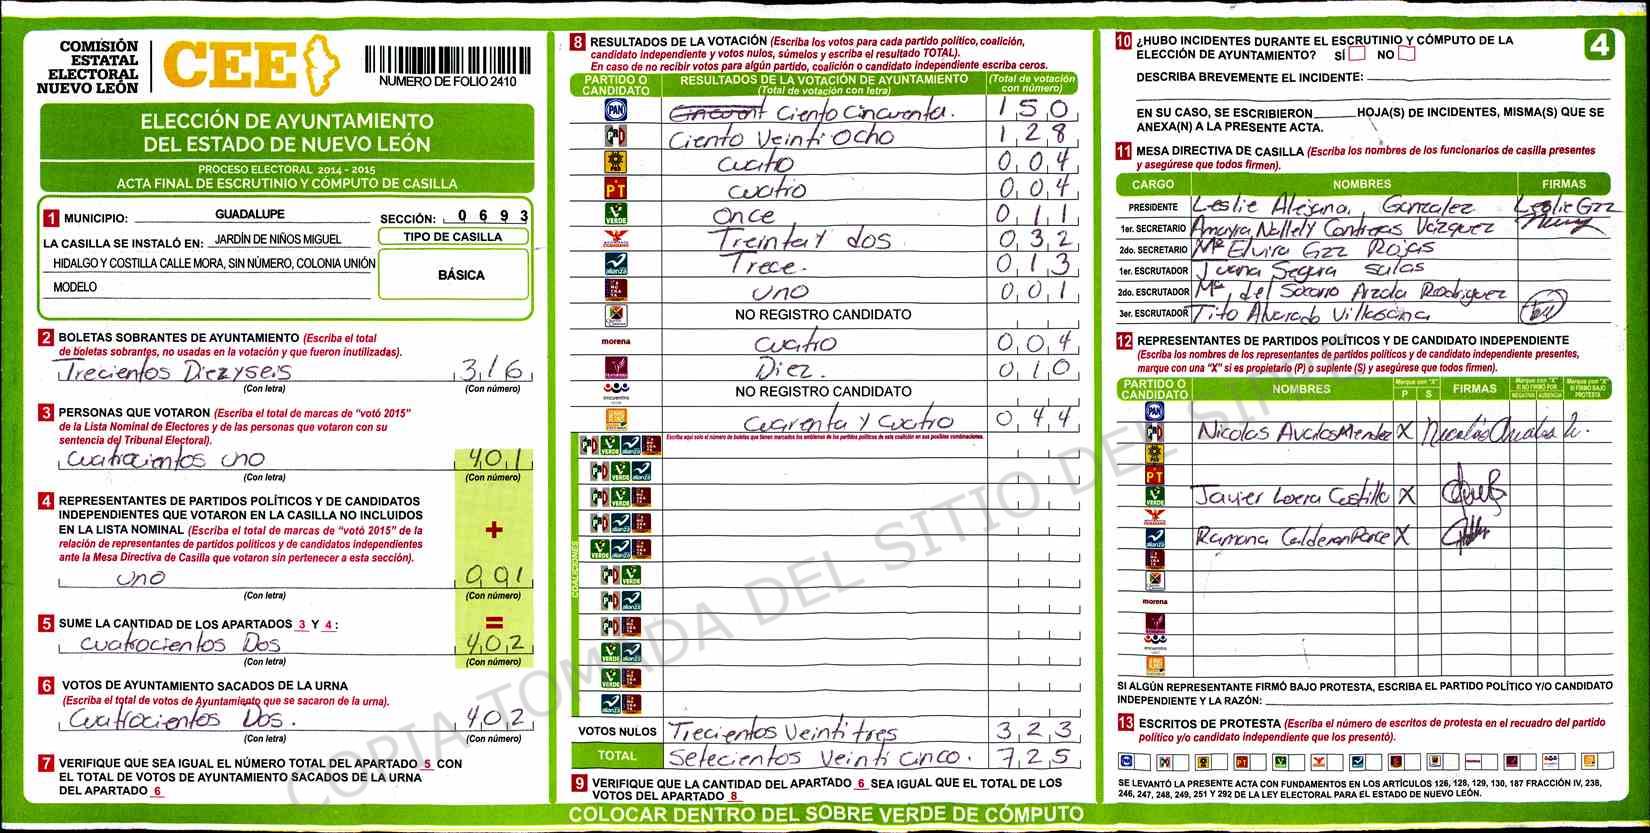 COMISIÓN
ESTATAL
ELECTORAL
NUEVO LEÓN
CEE
NUMERO DE FOLIO 2410
ELECCIÓN DE AYUNTAMIENTO
DEL ESTADO DE NUEVO LEÓN
PROCESO ELECTORAL 2014 - 2015
ACTA FINAL DE ESCRUTINIO Y CÓMPUTO DE CASILLA
1 MUNICIPIO: GUADALUPE SECCIÓN: 0 6 9 3
LA CASILLA SE INSTALÓ EN: JARDÍN DE NIÑOS MIGUEL
HIDALGO Y COSTILLA CALLE MORA, SIN NÚMERO, COLONIA UNIÓN
MODELO
TIPO DE CASILLA
BÁSICA
2 BOLETAS SOBRANTES DE AYUNTAMIENTO (Escriba el total
de boletas sobrantes, no usadas en la votación y que fueron inutilizadas).
Trecientos Diezyseis 3 1 6
(Con letra) (Con número)
3 PERSONAS QUE VOTARON (Escriba el total de marcas de "votó 2015"
de la Lista Nominal de Electores y de las personas que votaron con su
sentencia del Tribunal Electoral).
Cuatrocientos uno 4 0 1
(Con letra) (Con número)
4 REPRESENTANTES DE PARTIDOS POLÍTICOS Y DE CANDIDATOS
INDEPENDIENTES QUE VOTARON EN LA CASILLA NO INCLUIDOS
EN LA LISTA NOMINAL (Escriba el total de marcas de "votó 2015" de la
relación de representantes de partidos políticos y de candidatos independientes
ante la Mesa Directiva de Casilla que votaron sin pertenecer a esta sección).
+
uno 0 0 1
(Con letra) (Con número)
5 SUME LA CANTIDAD DE LOS APARTADOS 3 Y 4 :
=
Cuatrocientos Dos 4 0 2
(Con letra) (Con número)
6 VOTOS DE AYUNTAMIENTO SACADOS DE LA URNA
(Escriba el total de votos de Ayuntamiento que se sacaron de la urna).
Cuatrocientos Dos. 4 0 2
(Con letra) (Con número)
7 VERIFIQUE QUE SEA IGUAL EL NÚMERO TOTAL DEL APARTADO 5 CON
EL TOTAL DE VOTOS DE AYUNTAMIENTO SACADOS DE LA URNA
DEL APARTADO 6
8 RESULTADOS DE LA VOTACIÓN (Escriba los votos para cada partido político, coalición,
candidato independiente y votos nulos, súmelos y escriba el resultado TOTAL).
En caso de no recibir votos para algún partido, coalición o candidato independiente escriba ceros.
PARTIDO O CANDIDATO RESULTADOS DE LA VOTACIÓN DE AYUNTAMIENTO (Total de votación con letra) (Total de votación con número)
PAN Ciento Cincuenta. 1 5 0
PRI Ciento Veinti Ocho 1 2 8
PRD cuatro 0 0 4
PT cuatro 0 0 4
VERDE Once 0 1 1
Treinta y dos 0 3 2
alianza Trece. 0 1 3
uno 0 0 1
NO REGISTRO CANDIDATO
morena Cuatro 0 0 4
Diez. 0 1 0
encuentro NO REGISTRO CANDIDATO
Cuarenta y Cuatro 0 4 4
Escriba aquí solo el número de boletas que tienen marcados los emblemas de los partidos políticos de esta coalición en sus posibles combinaciones.
COALICIONES
VOTOS NULOS Trecientos Veintitres 3 2 3
TOTAL Setecientos Veinti cinco. 7 2 5
9 VERIFIQUE QUE LA CANTIDAD DEL APARTADO 6 SEA IGUAL QUE EL TOTAL DE LOS
VOTOS DEL APARTADO 8
COLOCAR DENTRO DEL SOBRE VERDE DE CÓMPUTO
10 ¿HUBO INCIDENTES DURANTE EL ESCRUTINIO Y CÓMPUTO DE LA
ELECCIÓN DE AYUNTAMIENTO? SÍ NO
4
DESCRIBA BREVEMENTE EL INCIDENTE:
EN SU CASO, SE ESCRIBIERON HOJA(S) DE INCIDENTES, MISMA(S) QUE SE
ANEXA(N) A LA PRESENTE ACTA.
11 MESA DIRECTIVA DE CASILLA (Escriba los nombres de los funcionarios de casilla presentes
y asegúrese que todos firmen).
CARGO NOMBRES FIRMAS
PRESIDENTE Leslie Alejana. Gonzalez Leslie Gzz
1er. SECRETARIO Amayra Nallely Contreras Vázquez
2do. SECRETARIO Mª Elvira Gzz Rojas
1er. ESCRUTADOR Juana Segura salas
2do. ESCRUTADOR Mª del Socorro Arzola Rodriguez
3er. ESCRUTADOR Tito Alvarado Villasana
12 REPRESENTANTES DE PARTIDOS POLÍTICOS Y DE CANDIDATO INDEPENDIENTE
(Escriba los nombres de los representantes de partidos políticos y de candidato independiente presentes,
marque con una "X" si es propietario (P) o suplente (S) y asegúrese que todos firmen).
PARTIDO O CANDIDATO NOMBRES Marque con "X" P S FIRMAS Marque con "X" SI NO FIRMÓ POR NEGATIVA AUSENCIA Marque con "X" SI FIRMÓ BAJO PROTESTA
PAN
PRI Nicolas Avalos Mendez X
PRD
PT
VERDE Javier Loera Castillo X
alianza Ramona Calderon Ponce X
morena
encuentro
SI ALGÚN REPRESENTANTE FIRMÓ BAJO PROTESTA, ESCRIBA EL PARTIDO POLÍTICO Y/O CANDIDATO
INDEPENDIENTE Y LA RAZÓN:
13 ESCRITOS DE PROTESTA (Escriba el número de escritos de protesta en el recuadro del partido
político y/o candidato independiente que los presentó).
SE LEVANTÓ LA PRESENTE ACTA CON FUNDAMENTOS EN LOS ARTÍCULOS 126, 128, 129, 130, 187 FRACCIÓN IV, 238,
246, 247, 248, 249, 251 Y 292 DE LA LEY ELECTORAL PARA EL ESTADO DE NUEVO LEÓN.
COPIA TOMADA DEL SITIO DEL SIPRE